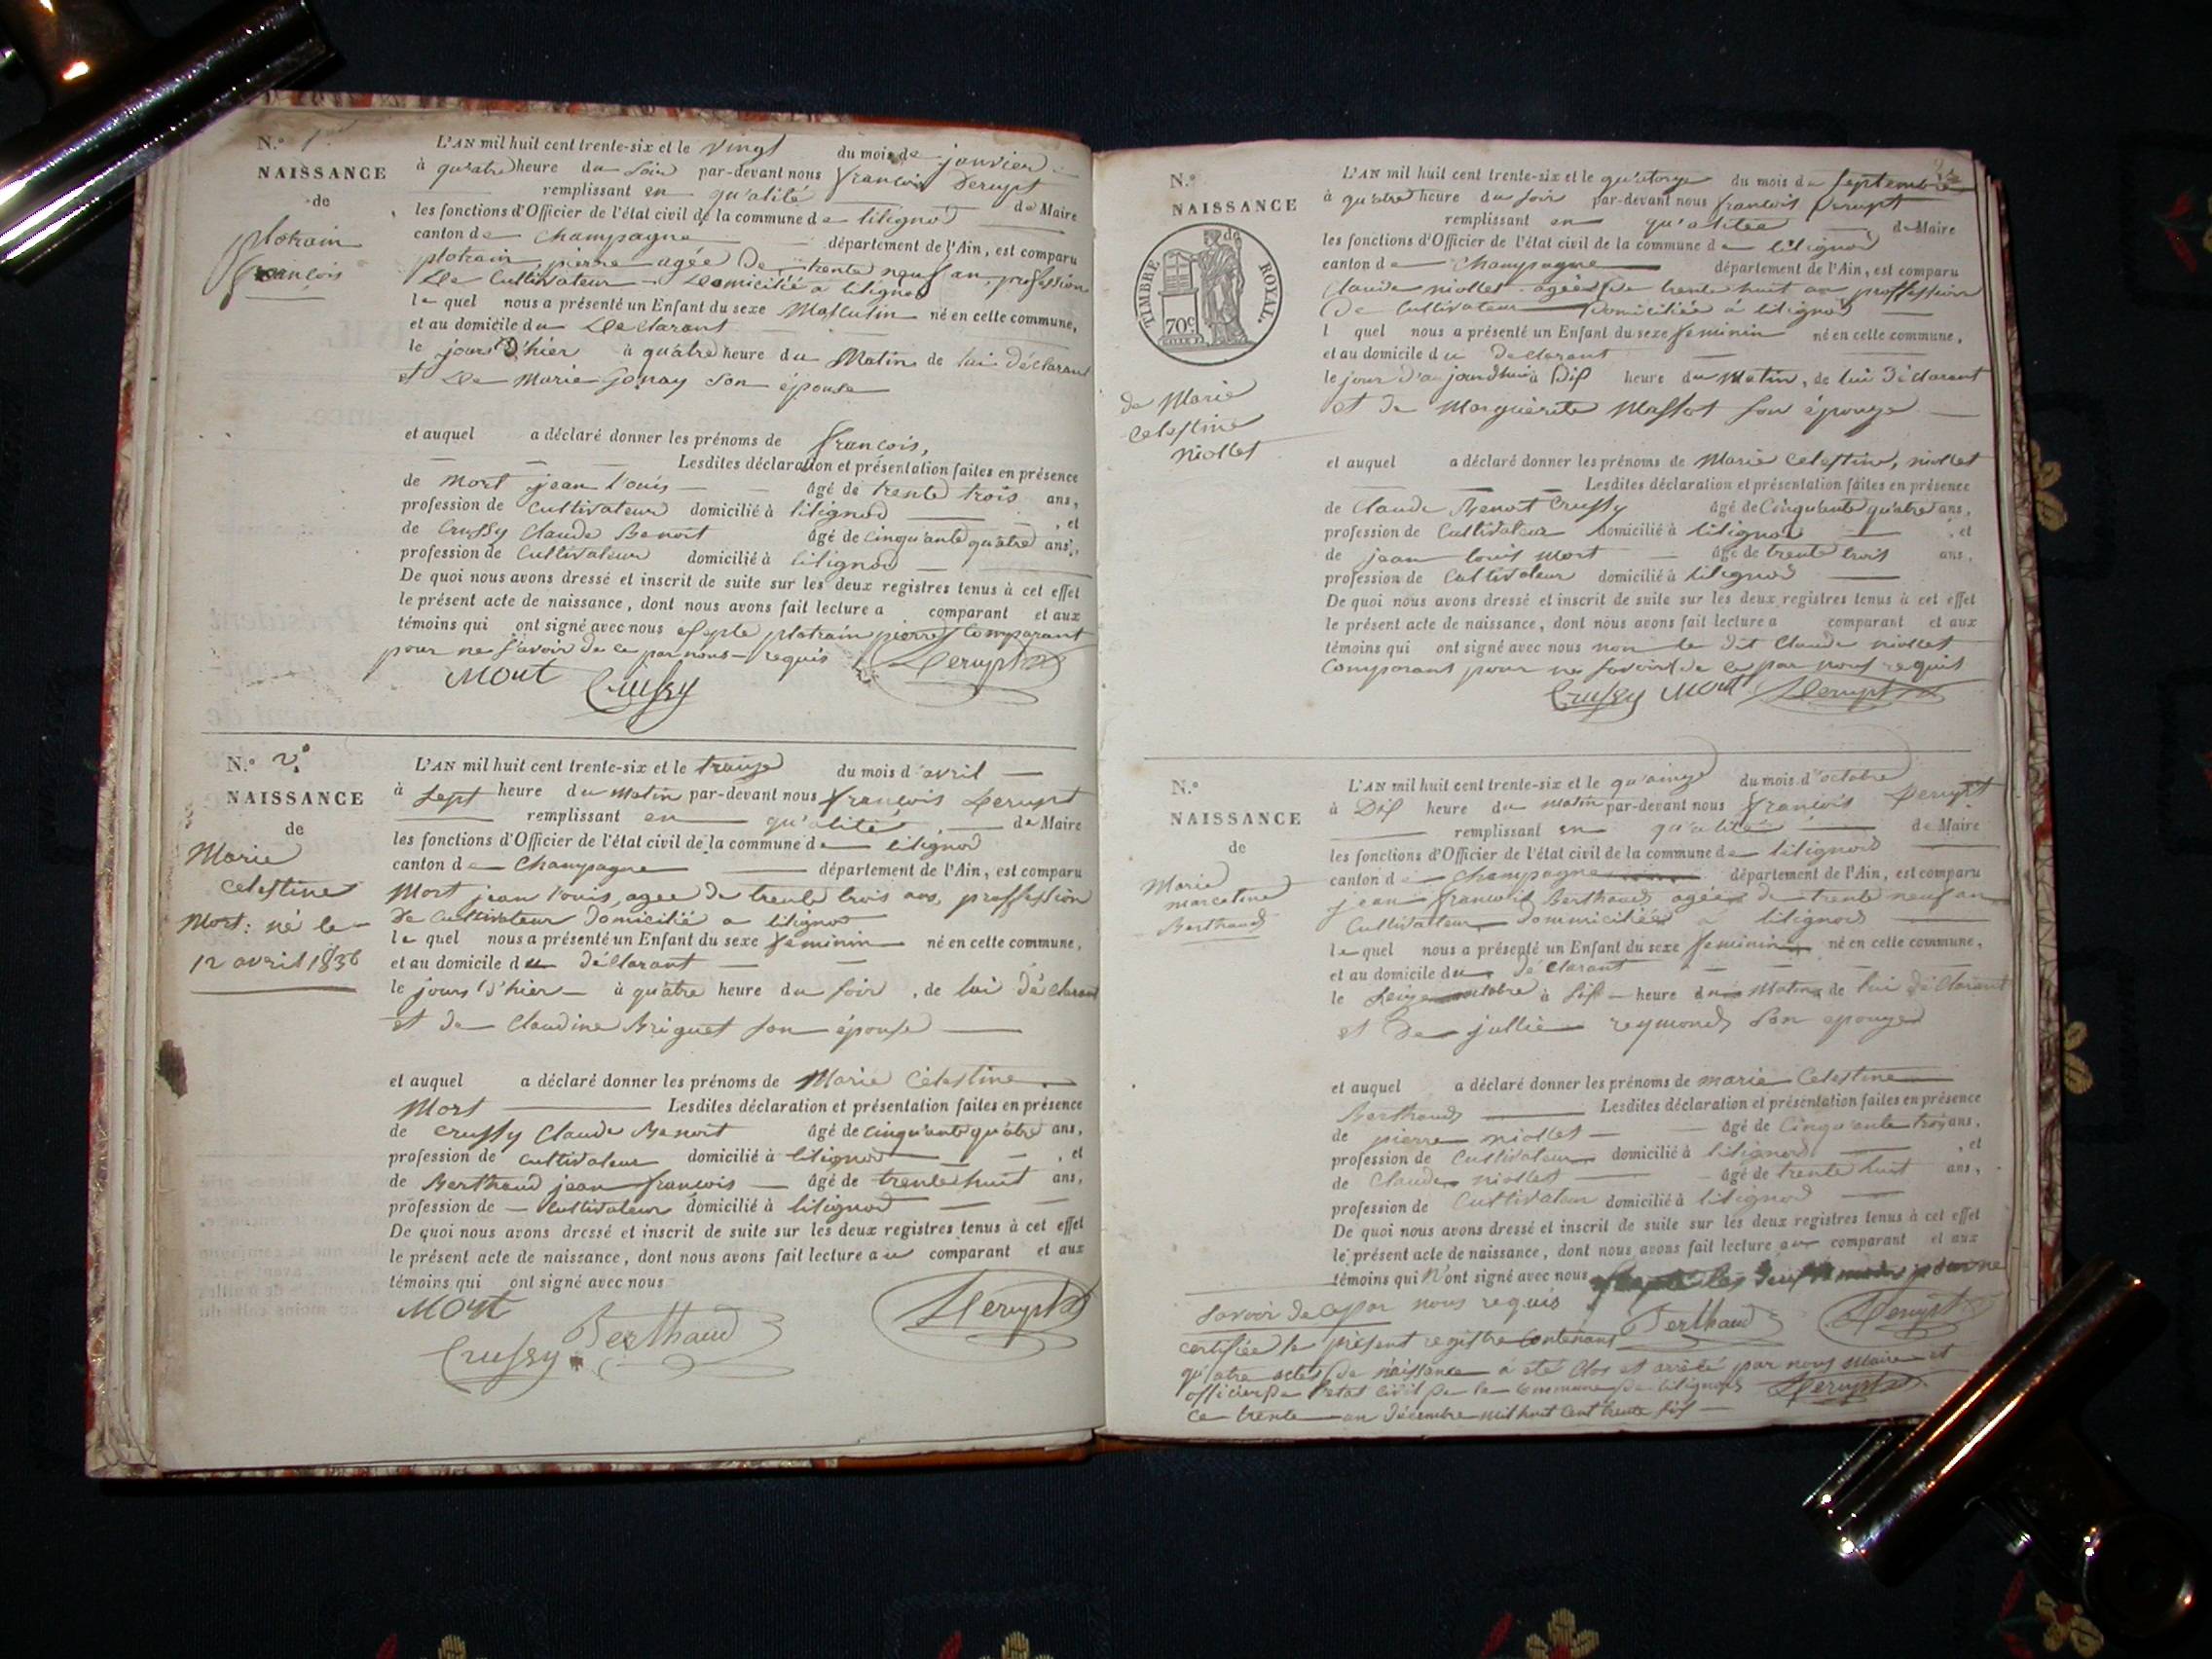 N.° 1
NAISSANCE
de
plotrain
françois
L'AN mil huit cent trente-six et le vingt du mois de janvier
à quatre heure du soir par-devant nous françois Derupt
remplissant en qu'alité de Maire
les fonctions d'Officier de l'état civil de la commune de lilignod
canton de Champagne département de l'Ain, est comparu
plotrain, pierre agée de trente neuf an, profession
de Cultivateur Domicilié a lilignod
le quel nous a présenté un Enfant du sexe Masculin né en cette commune,
et au domicile du Declarant
le jours d'hier à quatre heure du Matin de lui déclarant
et de Marie Gonay son épouse
et auquel a déclaré donner les prénoms de françois,
Lesdites déclaration et présentation faites en présence
de Mort jean louis âgé de trente trois ans,
profession de Cultivateur domicilié à lilignod , et
de Crussy Claude Benoit âgé de cinqu'ante quatre ans,
profession de Cultivateur domicilié à lilignod
De quoi nous avons dressé et inscrit de suite sur les deux registres tenus à cet effet
le présent acte de naissance, dont nous avons fait lecture a comparant et aux
témoins qui ont signé avec nous plotrain pierre Comparant
pour ne savoir de ce par nous requis Derupt
Mort Crussy
N.° 2
NAISSANCE
de
Marie
celestine
Mort: né le
12 avril 1836
L'AN mil huit cent trente-six et le traize du mois d'avril
à Sept heure du Matin par-devant nous françois Derupt
remplissant en qu'alité de Maire
les fonctions d'Officier de l'état civil de la commune de lilignod
canton de Champagne département de l'Ain, est comparu
Mort jean louis, agee de trente trois ans, proffession
de Cultivateur domicilié a lilignod
le quel nous a présenté un Enfant du sexe feminin né en cette commune,
et au domicile du déClarant
le jours d'hier à quatre heure du soir , de lui déClarant
et de Claudine Briguet son épouse
et auquel a déclaré donner les prénoms de Marie Célestine
Mort Lesdites déclaration et présentation faites en présence
de Crussy Claude Benoit âgé de cinqu'ante quatre ans,
profession de Cultivateur domicilié à lilignod , et
de Berthaud jean françois âgé de trente huit ans,
profession de Cultivateur domicilié à lilignod
De quoi nous avons dressé et inscrit de suite sur les deux registres tenus à cet effet
le présent acte de naissance, dont nous avons fait lecture au comparant et aux
témoins qui ont signé avec nous
Mort Derupt
Crussy Berthaud
N.°
NAISSANCE
de
TIMBRE ROYAL.
70c
de Marie
Celestine
niollet
L'AN mil huit cent trente-six et le qu'atorze du mois de Septembre
à quatre heure du soir par-devant nous françois Derupt
remplissant en qu'alitée de Maire
les fonctions d'Officier de l'état civil de la commune de lilignod
canton de Champagne département de l'Ain, est comparu
Claude niollet agée de trente huit an proffession
de Cultivateur domiciliée á lilignod
l quel nous a présenté un Enfant du sexe feminin né en cette commune,
et au domicile du Declarant
le jour d'aujourdhui à Dix heure du Matin, de lui déclarant
et de Marguérite Massot son épouze
et auquel a déclaré donner les prénoms de Marie Celestine, niollet
Lesdites déclaration et présentation faites en présence
de Claude Benoit Crussy âgé de Cinquante quatre ans,
profession de Cultivateur domicilié à lilignod , et
de jean louis mort âgé de trente trois ans,
profession de Cultivateur domicilié à lilignod
De quoi nous avons dressé et inscrit de suite sur les deux registres tenus à cet effet
le présent acte de naissance, dont nous avons fait lecture a comparant et aux
témoins qui ont signé avec nous non le dit Claude niollet
Comparant pour ne savoir de ce par nous requis
Crussy Mort Derupt
N.°
NAISSANCE
de
Marie
marceline
Berthaud
L'AN mil huit cent trente-six et le qu'ainze du mois d'octobre
à Dix heure du matin par-devant nous françois Derupt
remplissant en qu'alité de Maire
les fonctions d'Officier de l'état civil de la commune de lilignod
canton de Champagne département de l'Ain, est comparu
jean francois Berthaud agée de trente neuf an
Cultivateur dommiciliée a lilignod
le quel nous a présenté un Enfant du sexe feminin né en cette commune,
et au domicile du déClarant
le octobre à Six heure du Matin de lui déClarant
et de jullie reymond son epouze
et auquel a déclaré donner les prénoms de marie Celestine
Berthaud Lesdites déclaration et présentation faites en présence
de pierre niollet âgé de Cinqu'ente trois ans,
profession de Cultivateur domicilié à lilignod , et
de Claude niollet âgé de trente huit ans,
profession de Cultivateur domicilié à lilignod
De quoi nous avons dressé et inscrit de suite sur les deux registres tenus à cet effet
le présent acte de naissance, dont nous avons fait lecture au comparant et aux
témoins qui N'ont signé avec nous
Savoir de ce par nous requis Berthaud Derupt
certifiée le présent registre contenans
qu'atre actes de naissance a été Clos et arrêté par nous Maire et
officier de l'etat Civil de la Commune de lilignod Derupt
Ce trente un décembre mil huit Cent trente six